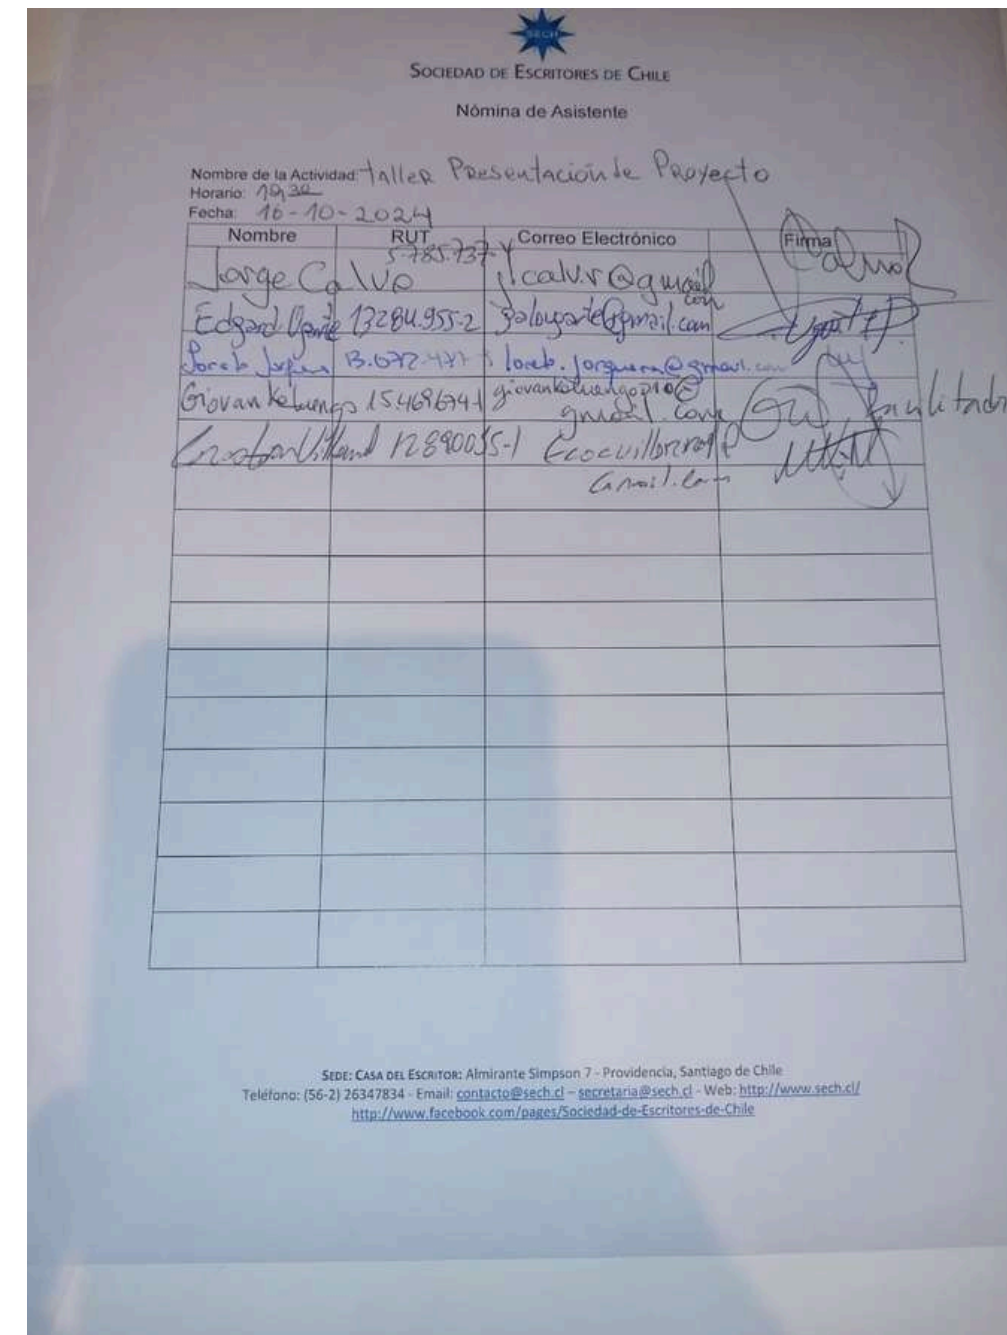 SECH
SOCIEDAD DE ESCRITORES DE CHILE
Nómina de Asistente
Nombre de la Actividad: taller Presentación de Proyecto
Horario: 19,30
Fecha: 16-10-2024
Nombre RUT Correo Electrónico Firma
Jorge Calvo 5.785.737- @gmail com
Edgard 13284.955-2 @gmail.com
@gmail.com
Giovanka Luengo 15.469.674-1 giovankaluengo710@ gmail.com facilitador
12890035-1
Gmail.com
SEDE: CASA DEL ESCRITOR: Almirante Simpson 7 - Providencia, Santiago de Chile
Teléfono: (56-2) 26347834 - Email: contacto@sech.cl – secretaria@sech.cl - Web: http://www.sech.cl/
http://www.facebook.com/pages/Sociedad-de-Escritores-de-Chile